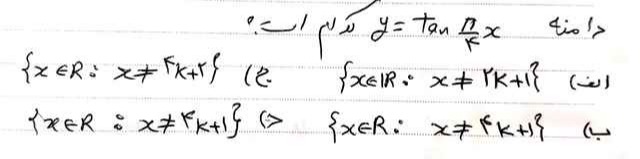 دامنه y = tan π/۴ x کدام است؟
الف) {x∈R : x ≠ ۲k+۱} ج) {x∈R : x ≠ ۴k+۲}
ب) {x∈R : x ≠ ۴k+۱} د) {x∈R : x ≠ ۴k+۱}